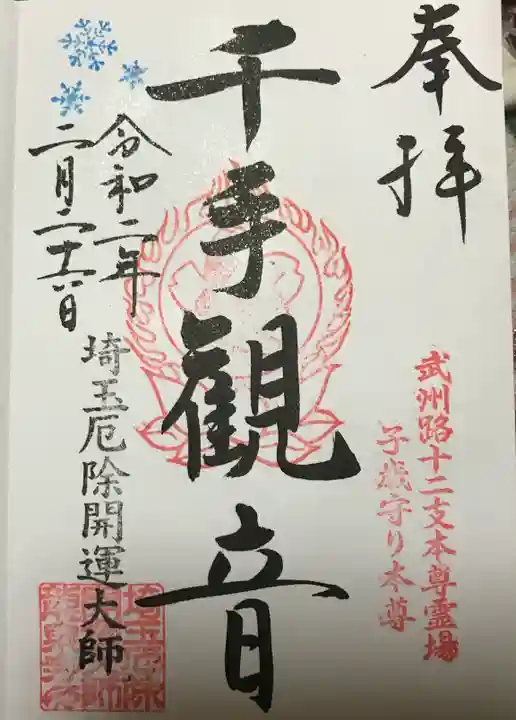 奉拝
武州路十二支本尊霊場
子歳守り本尊
千手観音
令和二年
二月二十六日
埼玉厄除開運大師